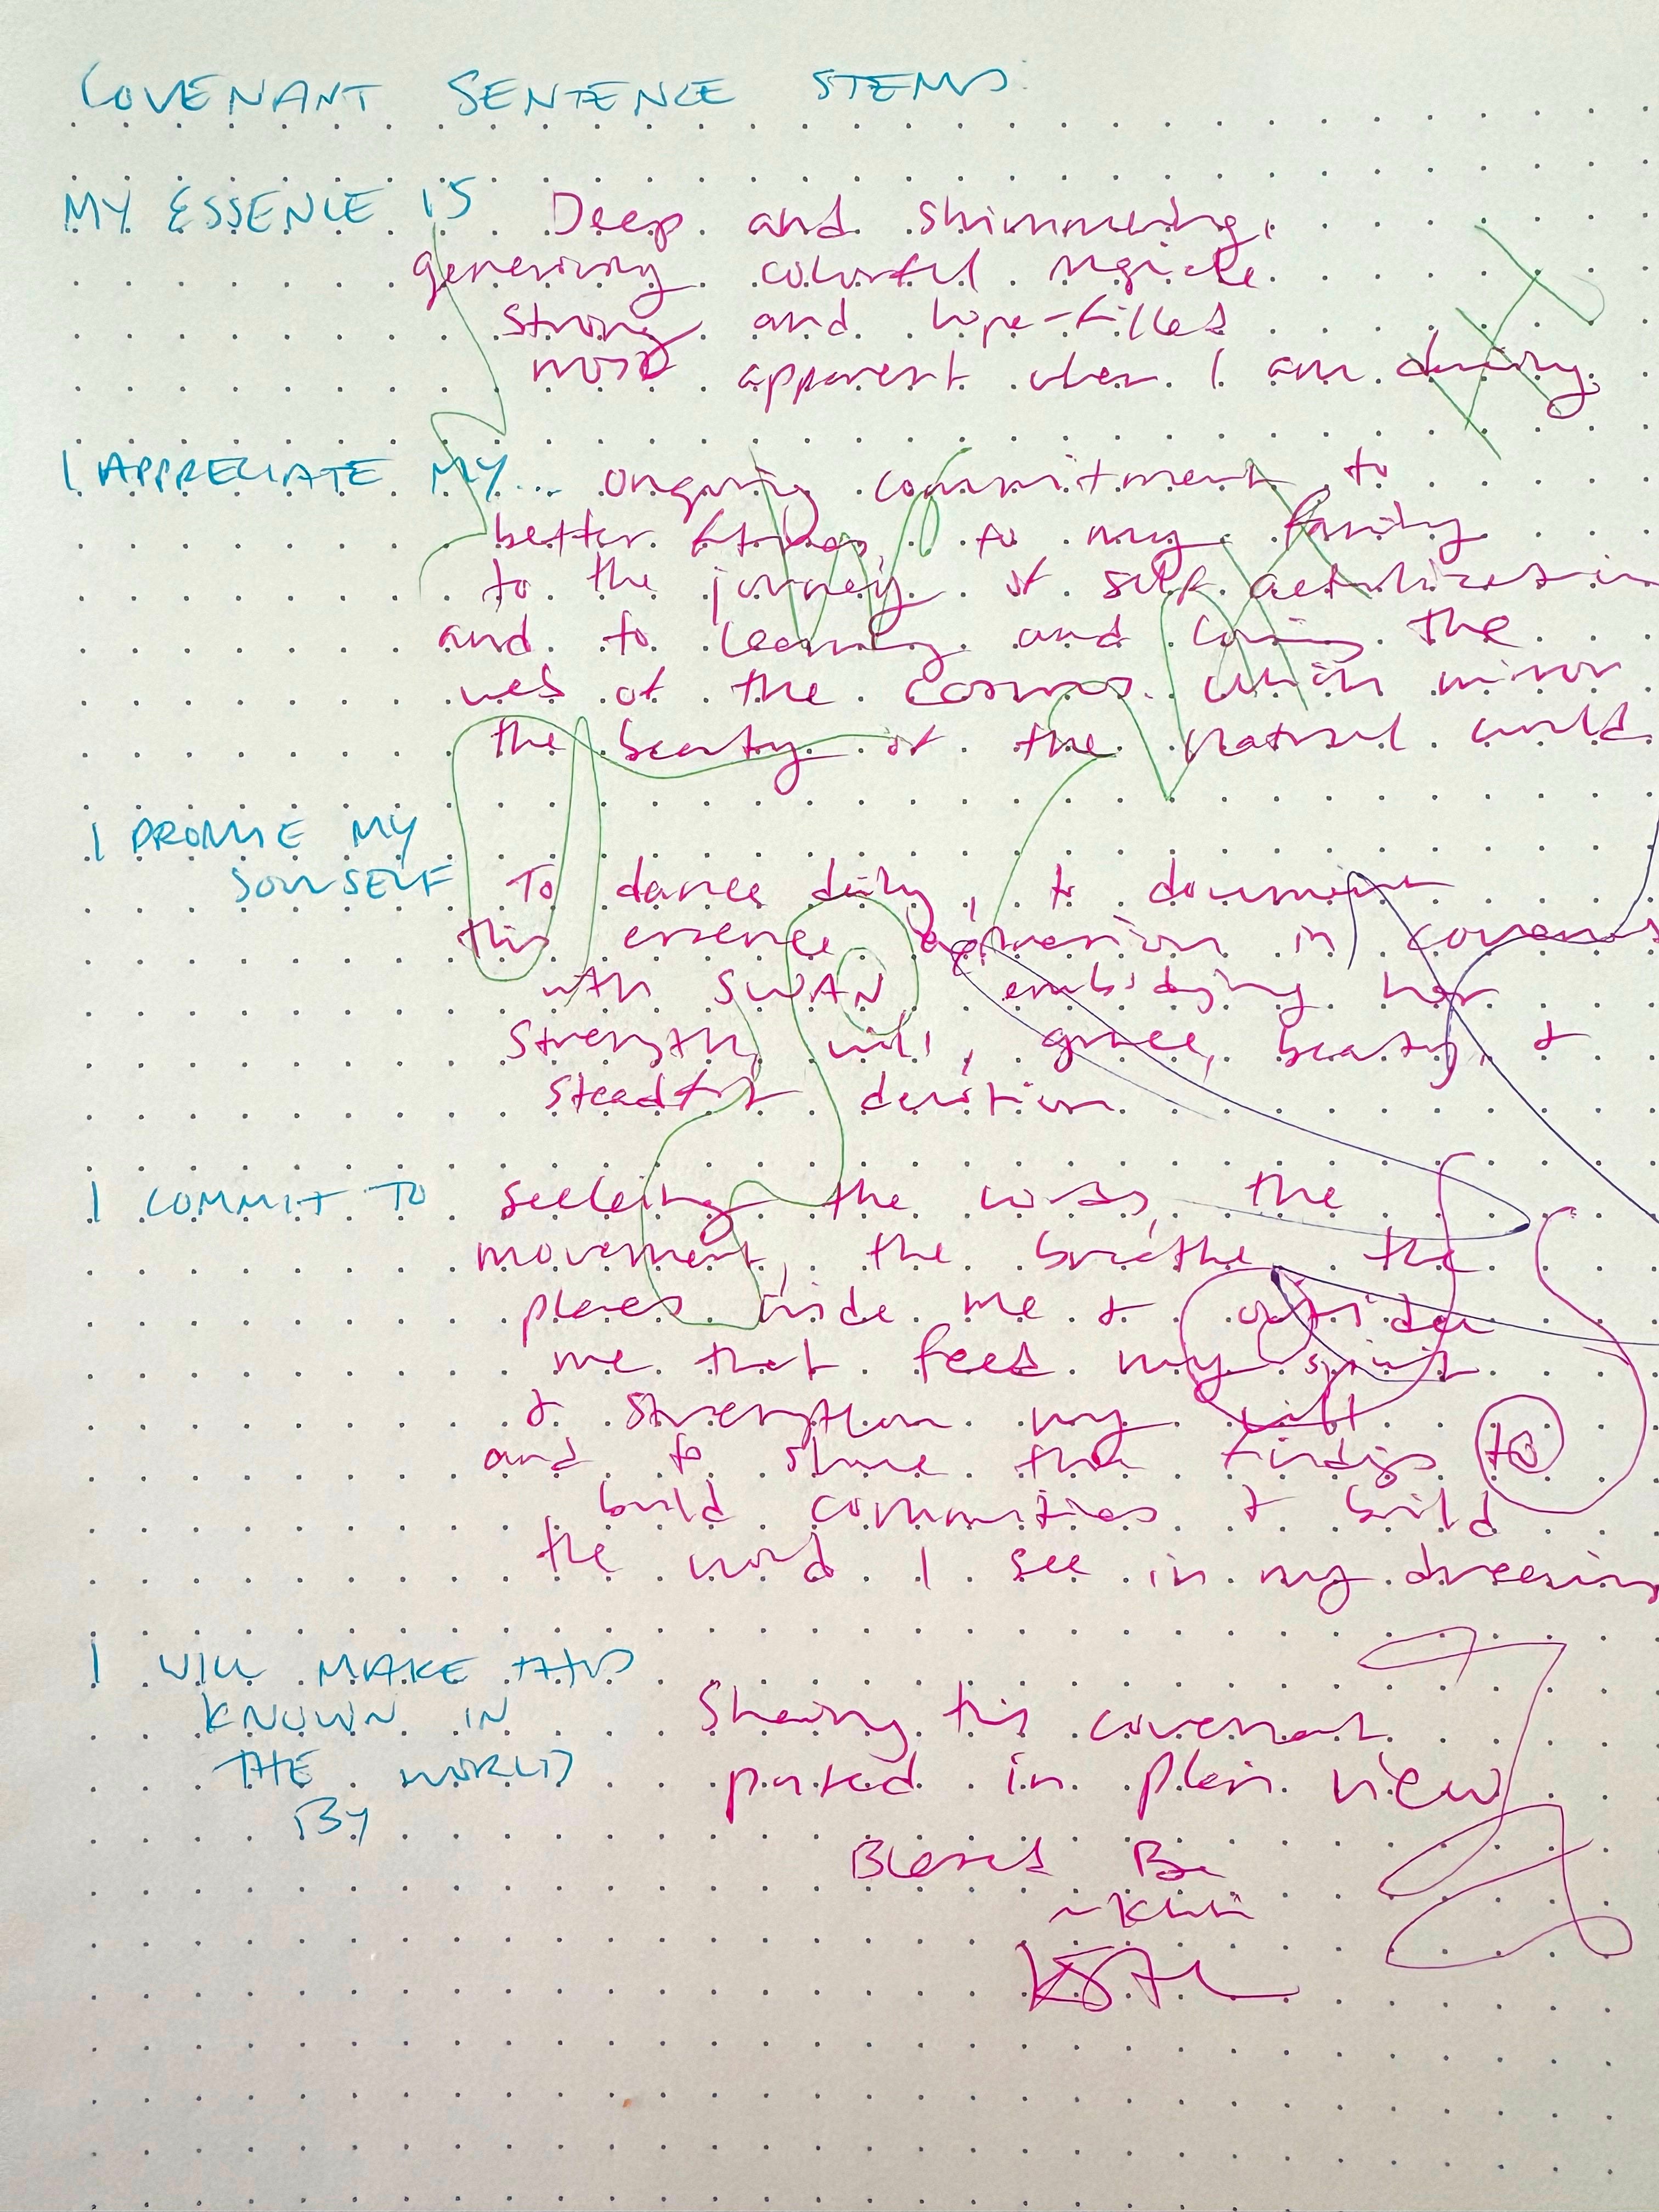 COVENANT SENTENCE STEMS:
MY ESSENCE IS Deep and shimmering,
generously colorful
strong and hope-filled
most apparent when I am dancing
I APPRECIATE MY... ongoing commitment to
better things, to my family
to the journey of self actualization
and to learning and the
of the cosmos which mirror
the beauty of the natural world
I PROMISE MY
SOULSELF To dance daily, to document
this essence expression in covenant
with SWAN embodying her
Strength, will, grace, beauty, &
steadfast devotion
I COMMIT TO seeking the words, the
movement, the breathe, the
places inside me & outside
me that feed my spirit
& strengthen my
and to share the findings to
build communities & build
the world I see in my dreaming
I WILL MAKE THIS
KNOWN IN Sharing this covenant
THE WORLD posted in plain view
BY
Blessed Be